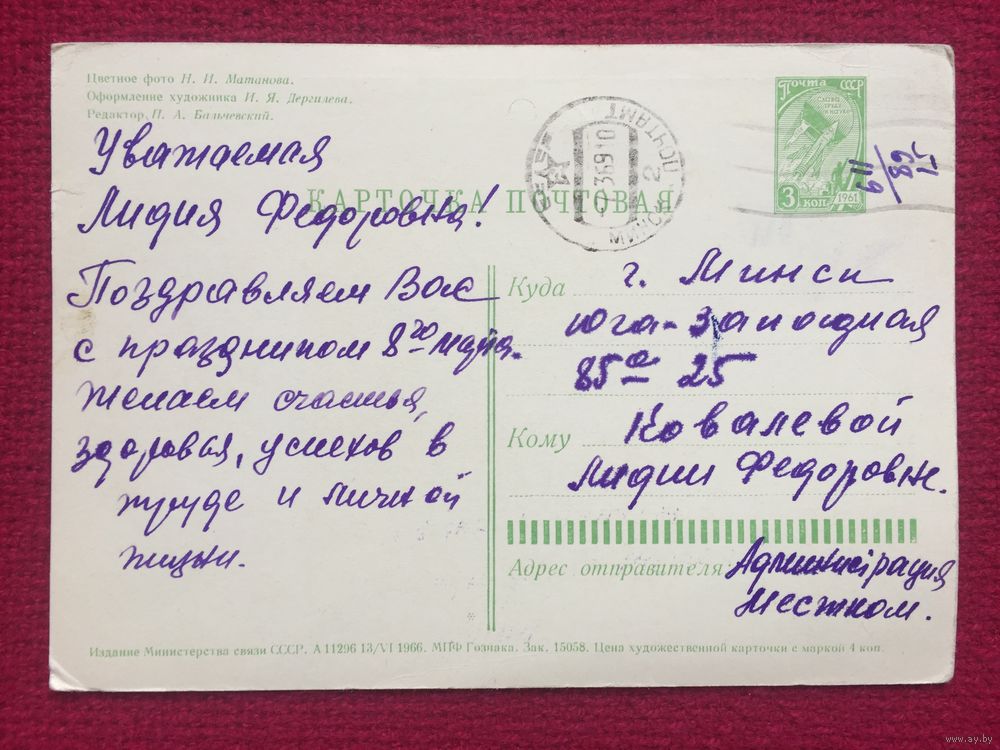 Цветное фото Н. И. Матанова.
Оформление художника И. Я. Дергилева.
Редактор П. А. Бальчевский.
Почта СССР
СЛАВА ТРУДУ И НАУКЕ
3 КОП
1961
ПОЧТАМТ
2
МИНСК
КАРТОЧКА ПОЧТОВАЯ
Уважаемая
Лидия Федоровна!
Поздравляем Вас
с праздником 8го марта.
Желаем счастья,
здоровья, успехов в
труде и личной
жизни.
Куда г. Минск
юга-западная
85а 25
Кому Ковалевой
Лидии Федоровн.
Адрес отправителя: Администрация
Местком.
Издание Министерства связи СССР. А 11296 13/VI 1966. МПФ Гознака. Зак. 15058. Цена художественной карточки с маркой 4 коп.
www.ay.by